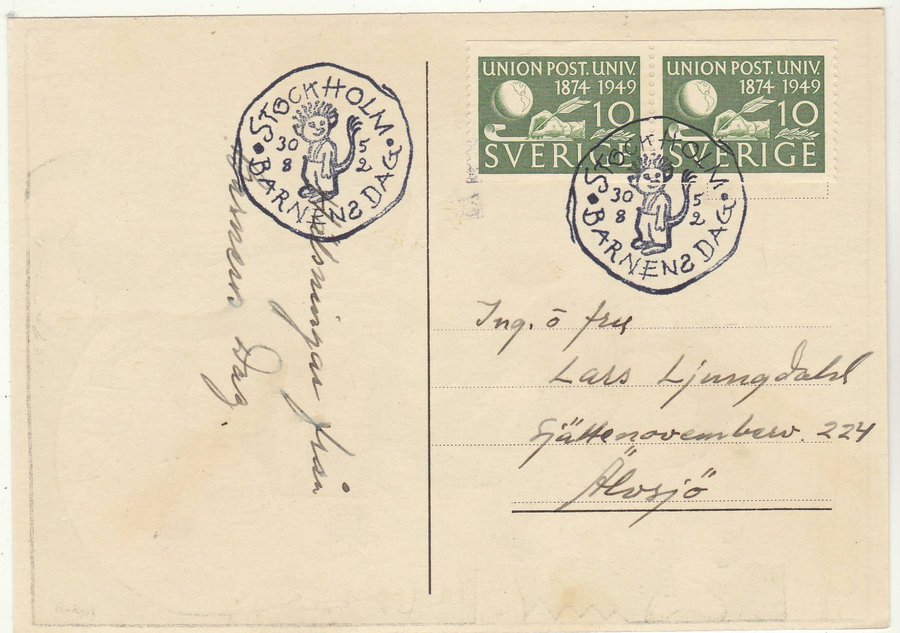 STOCKHOLM
30 5
8 2
BARNENS DAG
Hälsningar från
Barnens Dag
UNION POST. UNIV.
1874 1949
10
SVERIGE
UNION POST. UNIV.
1874 1949
10
SVERIGE
STOCKHOLM
30 5
8 2
BARNENS DAG
Ing. o fru
Lars Ljungdahl
Sjättenovemberv. 224
Älvsjö